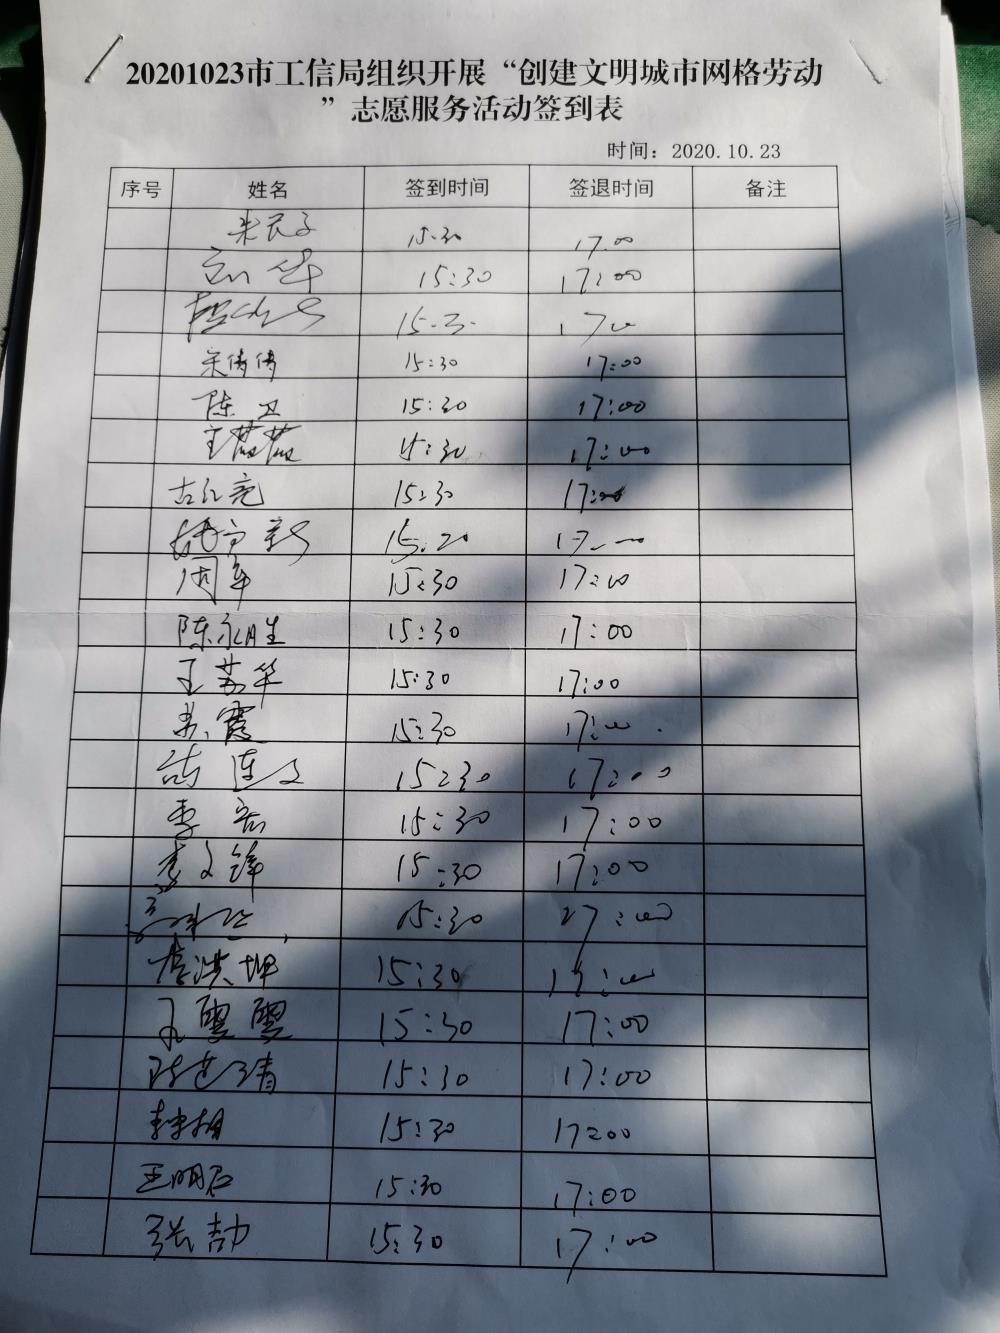 20201023市工信局组织开展“创建文明城市网格劳动
”志愿服务活动签到表
时间：2020.10.23
序号 姓名 签到时间 签退时间 备注
15:30 17:00
15:30 17:00
15:30 17:00
宋倩倩 15:30 17:00
陈卫 15:30 17:00
王茜茜 15:30 17:00
古红亮 15:30 17:00
15:20 17:00
周军 15:30 17:00
陈永胜 15:30 17:00
王苏华 15:30 17:00
苏霞 15:30 17:00
连文 15:30 17:00
李宏 15:30 17:00
李文锋 15:30 17:00
15:30 17:00
詹洪坤 15:30 17:00
孔雯雯 15:30 17:00
15:30 17:00
15:30 17:00
王明石 15:30 17:00
张劼 15:30 17:00